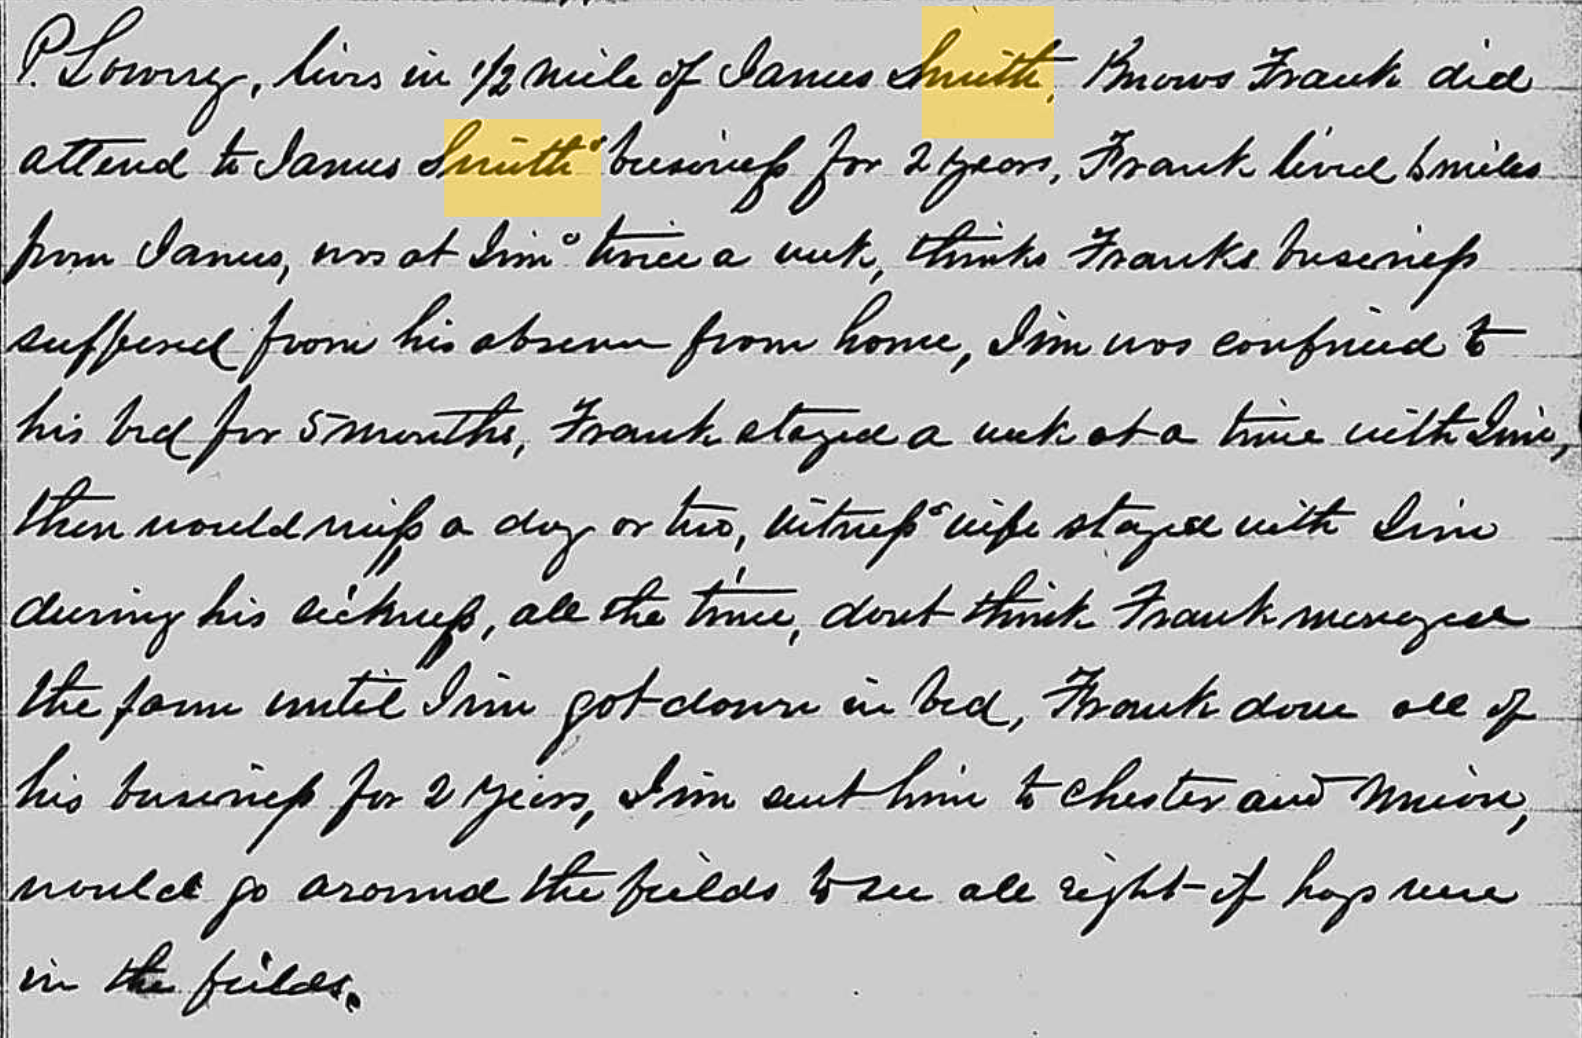 P. Lowry, lives in 1/2 mile of James Smith, Knows Frank did
attend to James Smiths business for 2 years, Frank lived 6 miles
from James, was at Jims twice a week, thinks Franks business
suffered from his absence from home, Jim was confined to
his bed for 5 months, Frank stayed a week at a time with Jim,
then would miss a day or two, witness' wife stayed with Jim
during his sickness, all the time, dont think Frank managed
the farm until Jim got down in bed, Frank done all of
his business for 2 years, Jim sent him to Chester and Union,
would go around the fields to see all right if hogs were
in the fields.